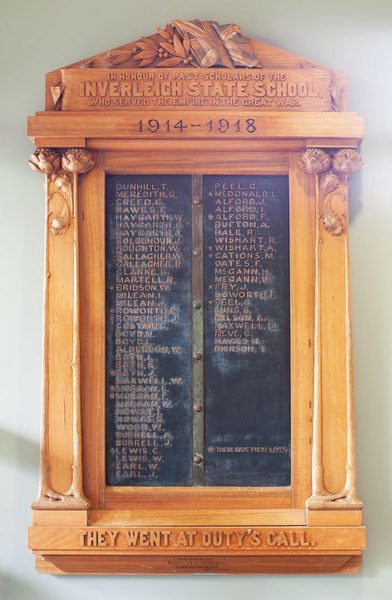 IN HONOUR OF PAST SCHOLARS OF THE
INVERLEIGH STATE SCHOOL.
WHO SERVED THE EMPIRE IN THE GREAT WAR.
1914-1918
DUNHILL, T.
MEREDITH, G.
CREED, G.
HAWES, F.
HAYGARTH, W.
HAYGARTH, G.
HAYGARTH, J.
COLQUHOUN, J.
HOUGHTON, W.
GALLAGHER, W.
GALLAGHER, R.
CLARKE, L.
MARTELL, R.
★ BRIDSON, W.
MCLEAN, L.
MCLEAN, J.
★ ROWORTH, W.
★ ROWORTH, J.
COSTAIN, C.
BOYD, N.
BOYD, J.
ALDERSON, W.
BATH, L.
BATH, E.
BATH, J.
MAXWELL, W.
★ MORGAN, E.
★ MORGAN, F.
W.
HOWAT,
HOWAT,
WOOD, W.
BURRELL, A.
BURRELL, J.
★ LEWIS, C.
LEWIS, W.
EARL, W.
EARL, J.
PEEL, G.
★ MCDONALD, L.
ALFORD, J.
ALFORD, I.
★ ALFORD, F.
BUFTON, A.
HALL, R.
WISHART, R.
★ WISHART, A.
★ CATIONS, M.
OATES, F.
MCCANN, H.
MCCANN, V.
★ FRY, J.
ROWORTH, F.
★ PEEL, G.
LUNG, G.
NELSON, A.
MAXWELL, C.
NEVE, G.
HAWES, H.
DICKSON, T.
★ THESE GAVE THEIR LIVES
THEY WENT AT DUTY'S CALL.